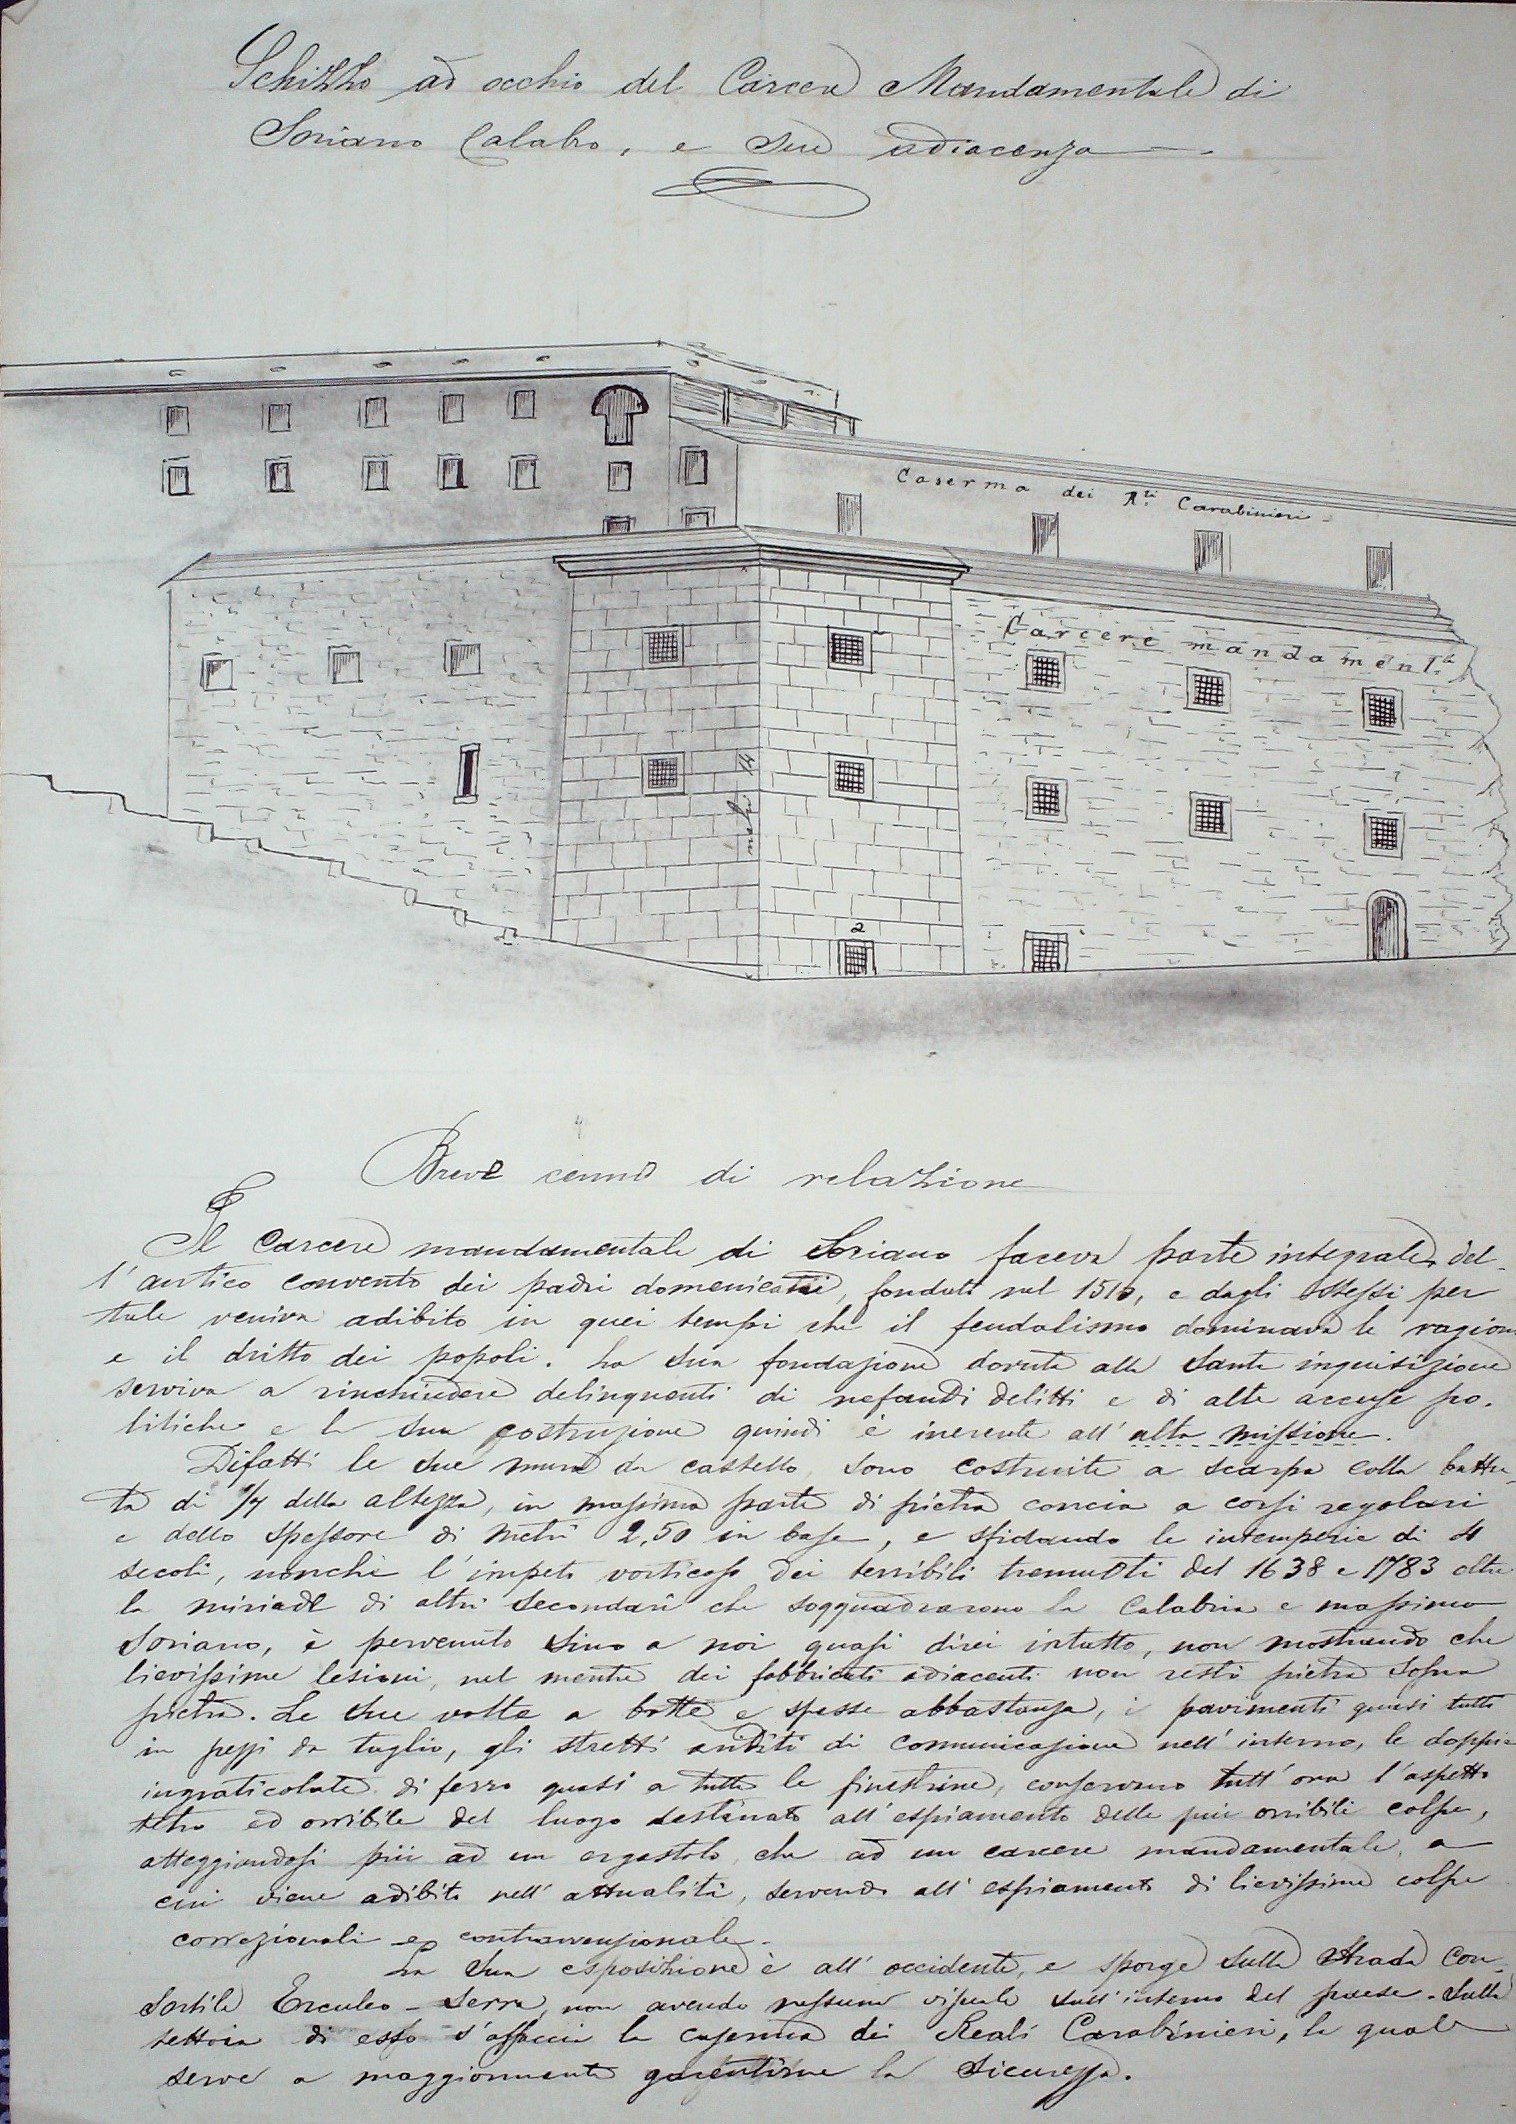 Schizzo ad occhio del Carcere Mandamentale di
Soriano Calabro, e sue adiacenze
Caserma dei R.li Carabinieri
Carcere mandament.le
metri 14
2
Breve cenno di relazione
Il Carcere mandamentale di Soriano faceva parte integrale del-
l'antico convento dei padri domenicani, fondato nel 1510, e dagli stessi per
tale veniva adibito in quei tempi che il feudalismo dominava le ragioni
e il dritto dei popoli. La sua fondazione dovuta alla Santa inquisizione
serviva a rinchiudere delinquenti di nefandi delitti e di alte accuse po-
litiche e la sua costruzione quindi è inerente all'alta missione.
Difatti le sue mura da castello sono costruite a scarpa colla battu-
ta di 1/7 della altezza, in massima parte di pietra concia a corsi regolari
e dello spessore di metri 2,50 in base, e sfidando le intemperie di 4
secoli, nonchè l'impeto vorticoso dei terribili tremuoti del 1638 e 1783 oltre
la miriade di altri secondarî che soqquadrarono la Calabria e massimo
Soriano, è pervenuto sino a noi quasi direi intatto, non mostrando che
lievissime lesioni, nel mentre dei fabbricati adiacenti non restò pietra sopra
pietra. Le sue volte a botte e spesse abbastanza, i pavimenti quasi tutti
in pezzi da taglio, gli stretti anditi di comunicazione nell'interno, le doppie
ingraticolate di ferro quasi a tutte le finestrine, conservano tutt'ora l'aspetto
tetro ed orribile del luogo destinato all'espiamento delle più orribili colpe,
atteggiandosi più ad un ergastolo che ad un carcere mandamentale, a
cui viene adibito nell'attualità, servendo all'espiamento di lievissime colpe
correzionali e contravvenzionale.
La sua esposizione è all'occidente, e sporge sulla strada Con-
sortile Erculeo - Serra, non avendo nessuna visuale sull'interno del paese. Sulla
tettoia di esso s'affaccia la caserma dei Reali Carabinieri, la quale
serve a maggiormente garentirne la sicurezza.